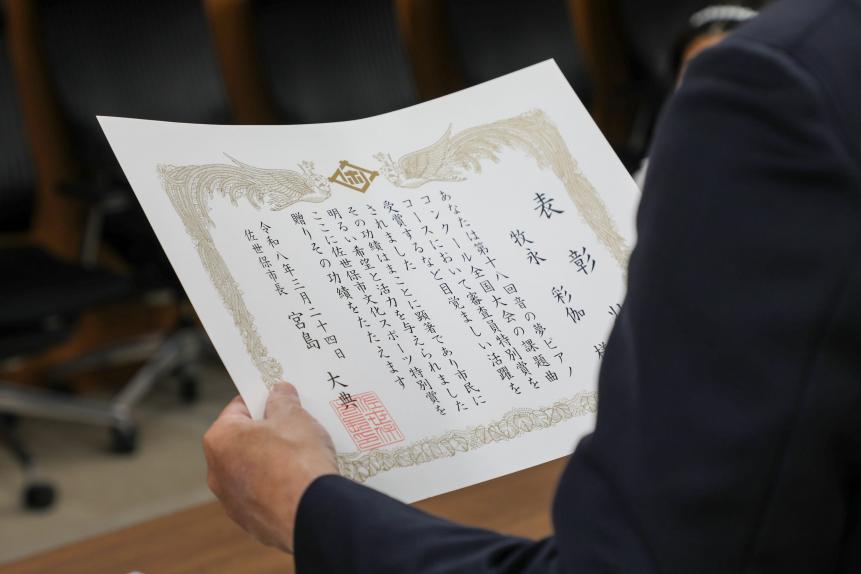 表彰
牧永 彩伽 様
あなたは第十八回音の夢ピアノ
コンクール全国大会の課題曲
コースにおいて審査員特別賞を
受賞するなど目覚ましい活躍を
されました
その功績はまことに顕著であり市民に
明るい希望と活力を与えられました
ここに佐世保市文化スポーツ特別賞を
贈りその功績をたたえます
令和八年三月二十四日
佐世保市長 宮島 大典